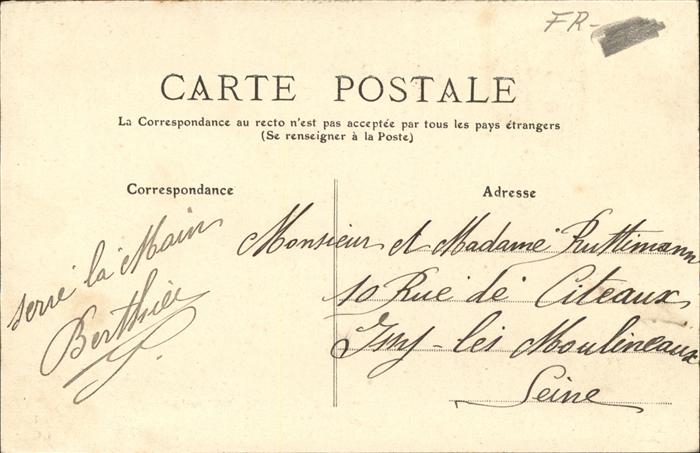 FR-
CARTE POSTALE
La Correspondance au recto n'est pas acceptée par tous les pays étrangers
(Se renseigner à la Poste)
Correspondance
serre la Main
Adresse
Monsieur et Madame Ruttimann
10 Rue de Citeaux
Issy-les Moulineaux
Seine